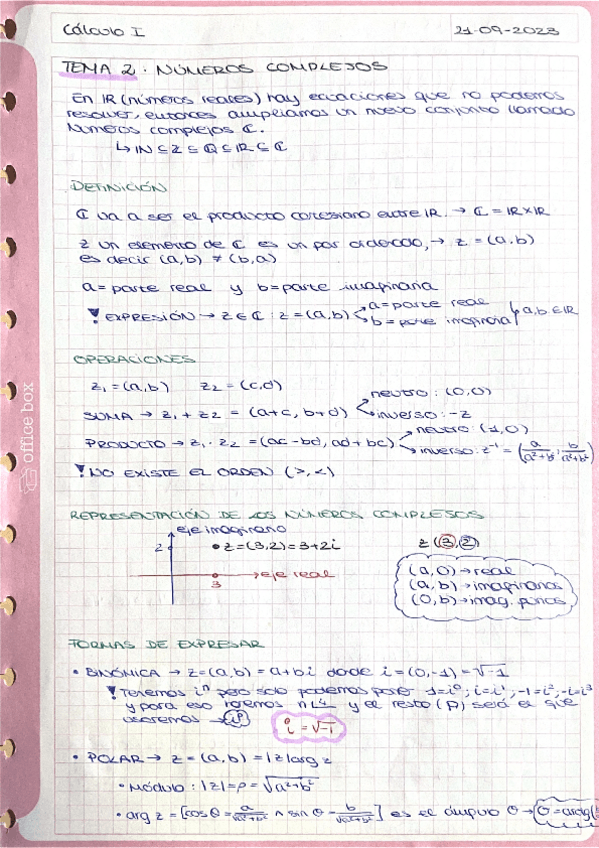 Cálculo I 21-09-2023
TEMA 2. NÚMEROS COMPLEJOS
En IR (números reales) hay ecuaciones que no podemos
resolver, entonces ampliamos un nuevo conjunto llamado
Números complejos ℂ.
↳ IN ⊆ Z ⊆ Q ⊆ IR ⊆ ℂ
DEFINICIÓN
ℂ va a ser el producto cartesiano entre IR. → ℂ = IR×IR
z un elemento de ℂ es un par ordenado, → z = (a,b)
es decir (a,b) ≠ (b,a)
a = parte real y b = parte imaginaria
! EXPRESIÓN → z ∈ ℂ : z = (a,b) a = parte real
b = parte a,b ∈ IR
OPERACIONES
z₁ = (a,b) z₂ = (c,d)
SUMA → z₁ + z₂ = (a+c, b+d) neutro : (0,0)
inverso : -z
PRODUCTO → z₁ · z₂ = (ac-bd, ad+bc) neutro : (1,0)
inverso : z⁻¹ = (a/(a²+b²), b/(a²+b²))
! NO EXISTE EL ORDEN (>,<)
REPRESENTACIÓN DE LOS NÚMEROS COMPLEJOS
eje imaginario
2 z = (3,2) = 3+2i z (3,2)
eje real
3
(a,0) → real
(a,b) → imaginarios
(0,b) → imag. puros
FORMAS DE EXPRESAR
• BINÓMICA → z = (a,b) = a+bi donde i = (0,-1) = √-1
! Tenemos iⁿ pero solo podemos poner 1=i⁰; i=i¹; -1=i²; -i=i³
y para eso haremos n∟4 y el resto (p) será el que
usaremos → iᵖ
i = √-1
• POLAR → z = (a,b) = |z|arg z
• Módulo : |z| = ρ = √a²+b²
• arg z = [cos θ = a/√a²+b² ∧ sin θ = b/√a²+b²] es el ángulo θ →
office box